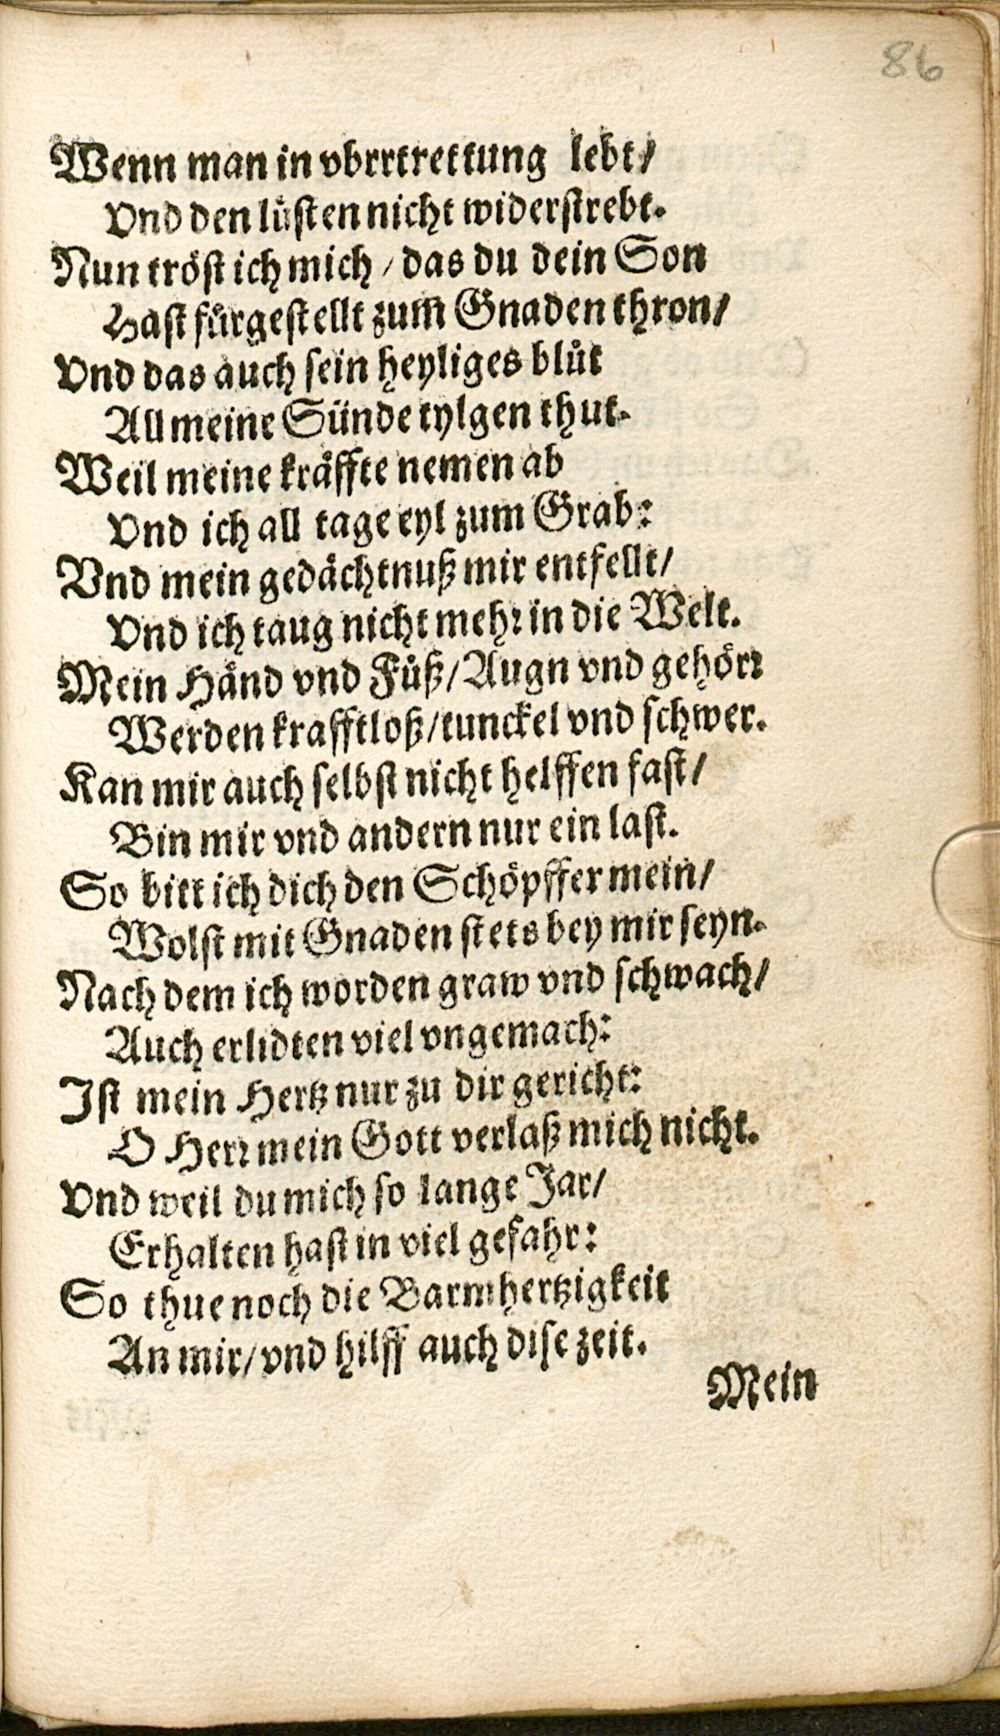 86
Wenn man in vbrrtrettung lebt/
Vnd den lüsten nicht widerstrebt.
Nun tröst ich mich / das du dein Son
Hast fürgestellt zum Gnaden thron/
Vnd das auch sein heyliges blůt
All meine Sünde tylgen thut.
Weil meine kräffte nemen ab
Vnd ich all tage eyl zum Grab:
Vnd mein gedächtnuß mir entfellt/
Vnd ich taug nicht mehr in die Welt.
Mein Händ vnd Füß/ Augn vnd gehörr
Werden krafftloß/ tunckel vnd schwer.
Kan mir auch selbst nicht helffen fast/
Bin mir vnd andern nur ein last.
So bitt ich dich den Schöpffer mein/
Wolst mit Gnaden stets bey mir seyn.
Nach dem ich worden graw vnd schwach/
Auch erlidten viel vngemach:
Ist mein Hertz nur zu dir gericht:
O Herr mein Gott verlaß mich nicht.
Vnd weil du mich so lange Jar/
Erhalten hast in viel gefahr:
So thue noch die Barmhertzigkeit
An mir/ vnd hilff auch dise zeit.
Mein